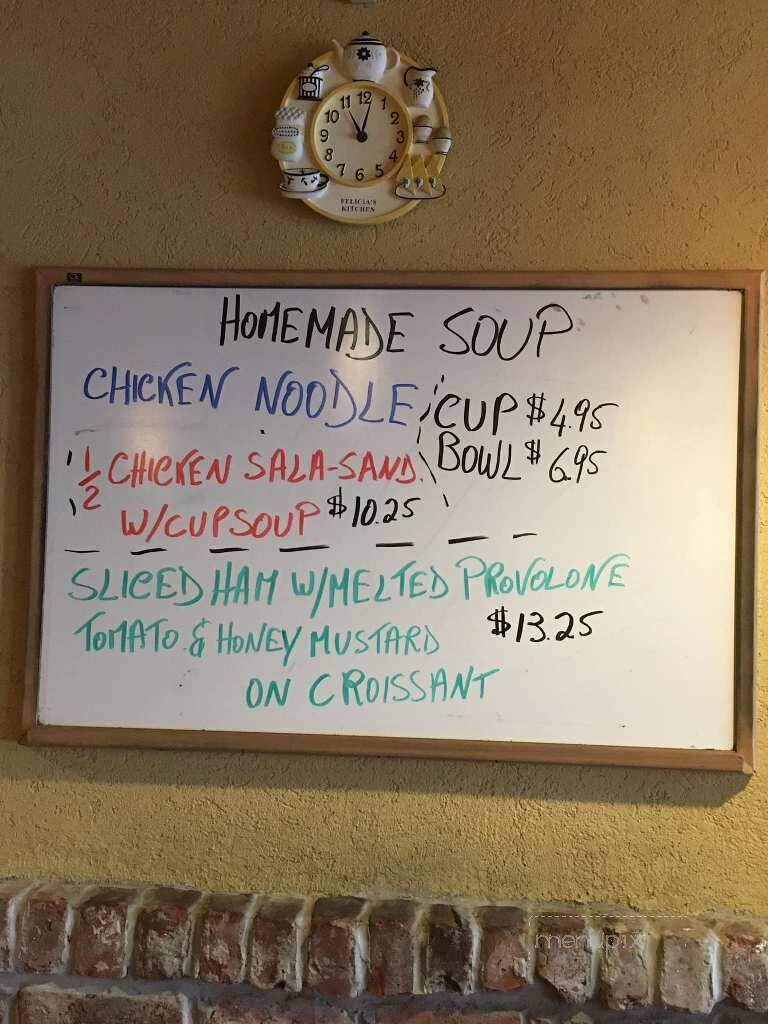 11 12 1
10 2
9 3
8 4
7 6 5
FELICIA'S
KITCHEN
HOMEMADE SOUP
CHICKEN NOODLE
CUP $4.95
BOWL $6.95
1/2 CHICKEN SALA-SAND.
W/CUP SOUP $10.25
SLICED HAM W/MELTED PROVOLONE
TOMATO & HONEY MUSTARD $13.25
ON CROISSANT
menupix